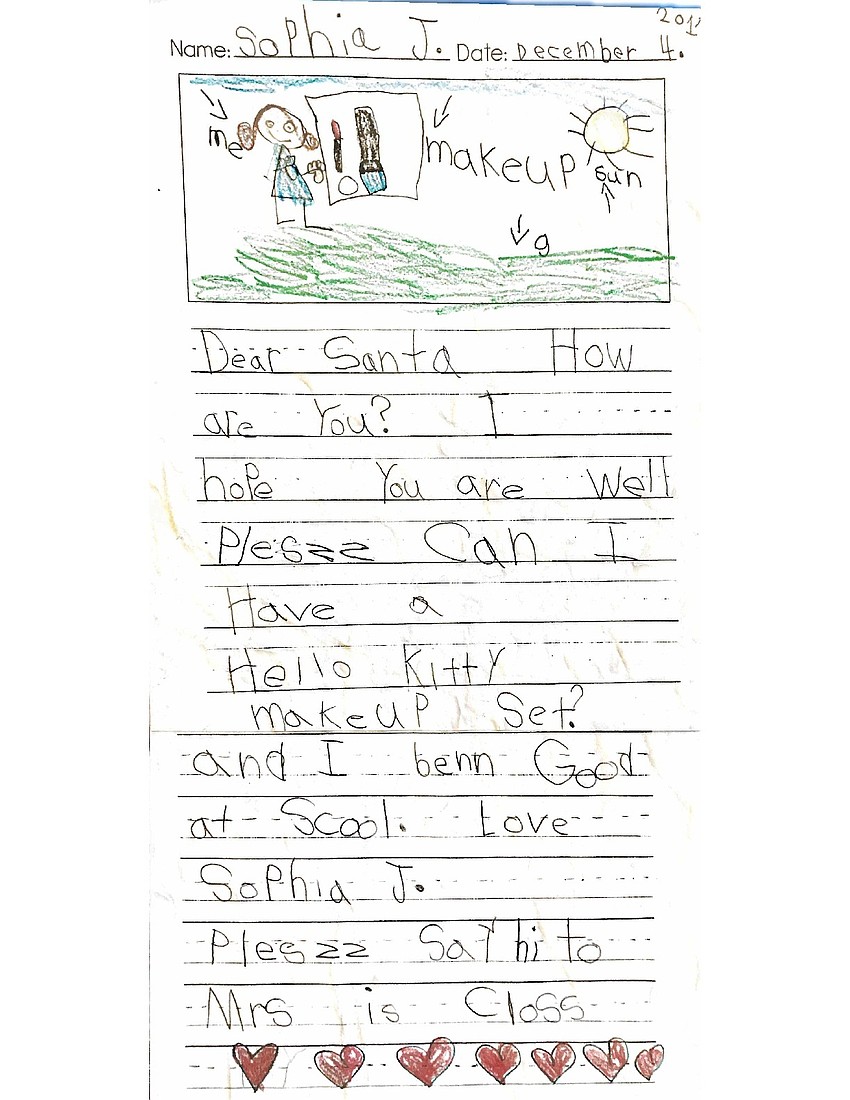 Name: Sophia J. Date: December 4.
me
makeup
sun
g
Dear Santa How
are You? I
hope You are Well
Pleszz Can I
Have a
Hello Kitty
makeup Set?
and I benn Good
at Scool. Love
Sophia J.
Pleszz Say hi to
Mrs is Closs